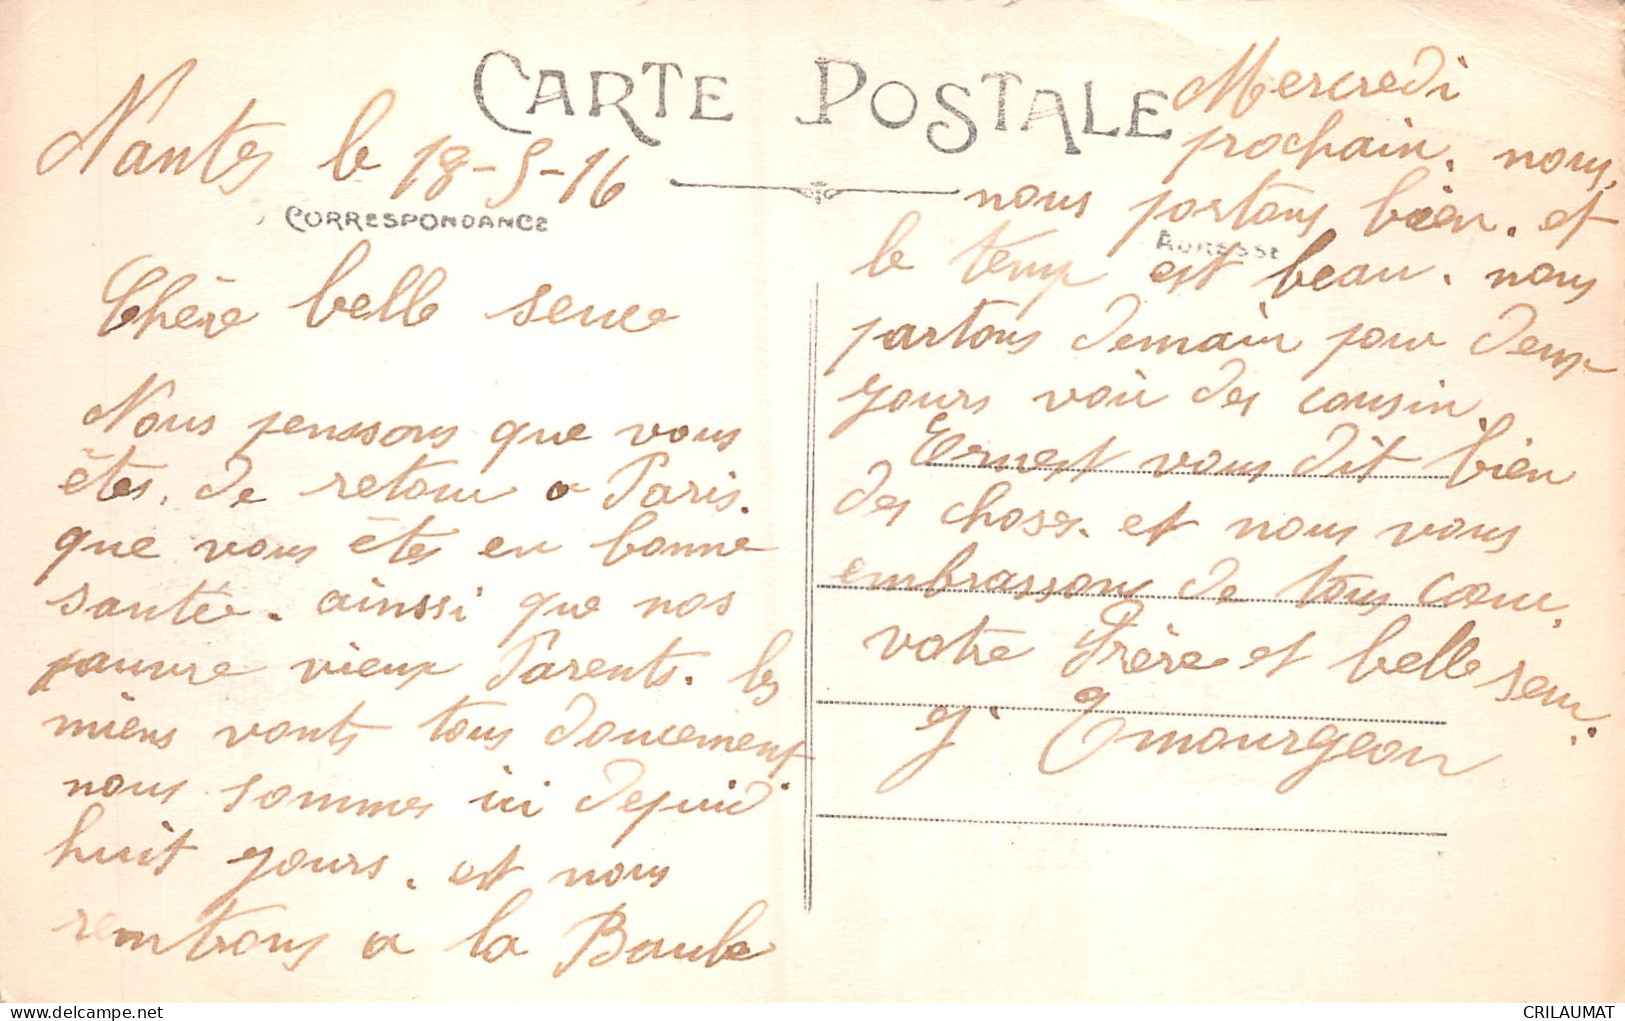 CARTE POSTALE
Nantes le 18-5-16
CORRESPONDANCE
Chère belle seure
Nous penssons que vous
êtes. de retour a Paris.
que vous éte en bonne
santée. ainsi que nos
pauvre vieux Parents. les
miens vonts tous doucement
nous sommes ici depuid
huit jours. et nous
rentrons a la Baule
Mercredi
prochain. nous,
nous portons bien. et
ADRESSE
le temp est beau. nous
partons demain pour deux
jours voir des cousin.
Ernest vous dit bien
des choses. et nous vous
embrassons de tous cœur,
votre Frère et belle seur.
J. Emourgeon
CRILAUMAT